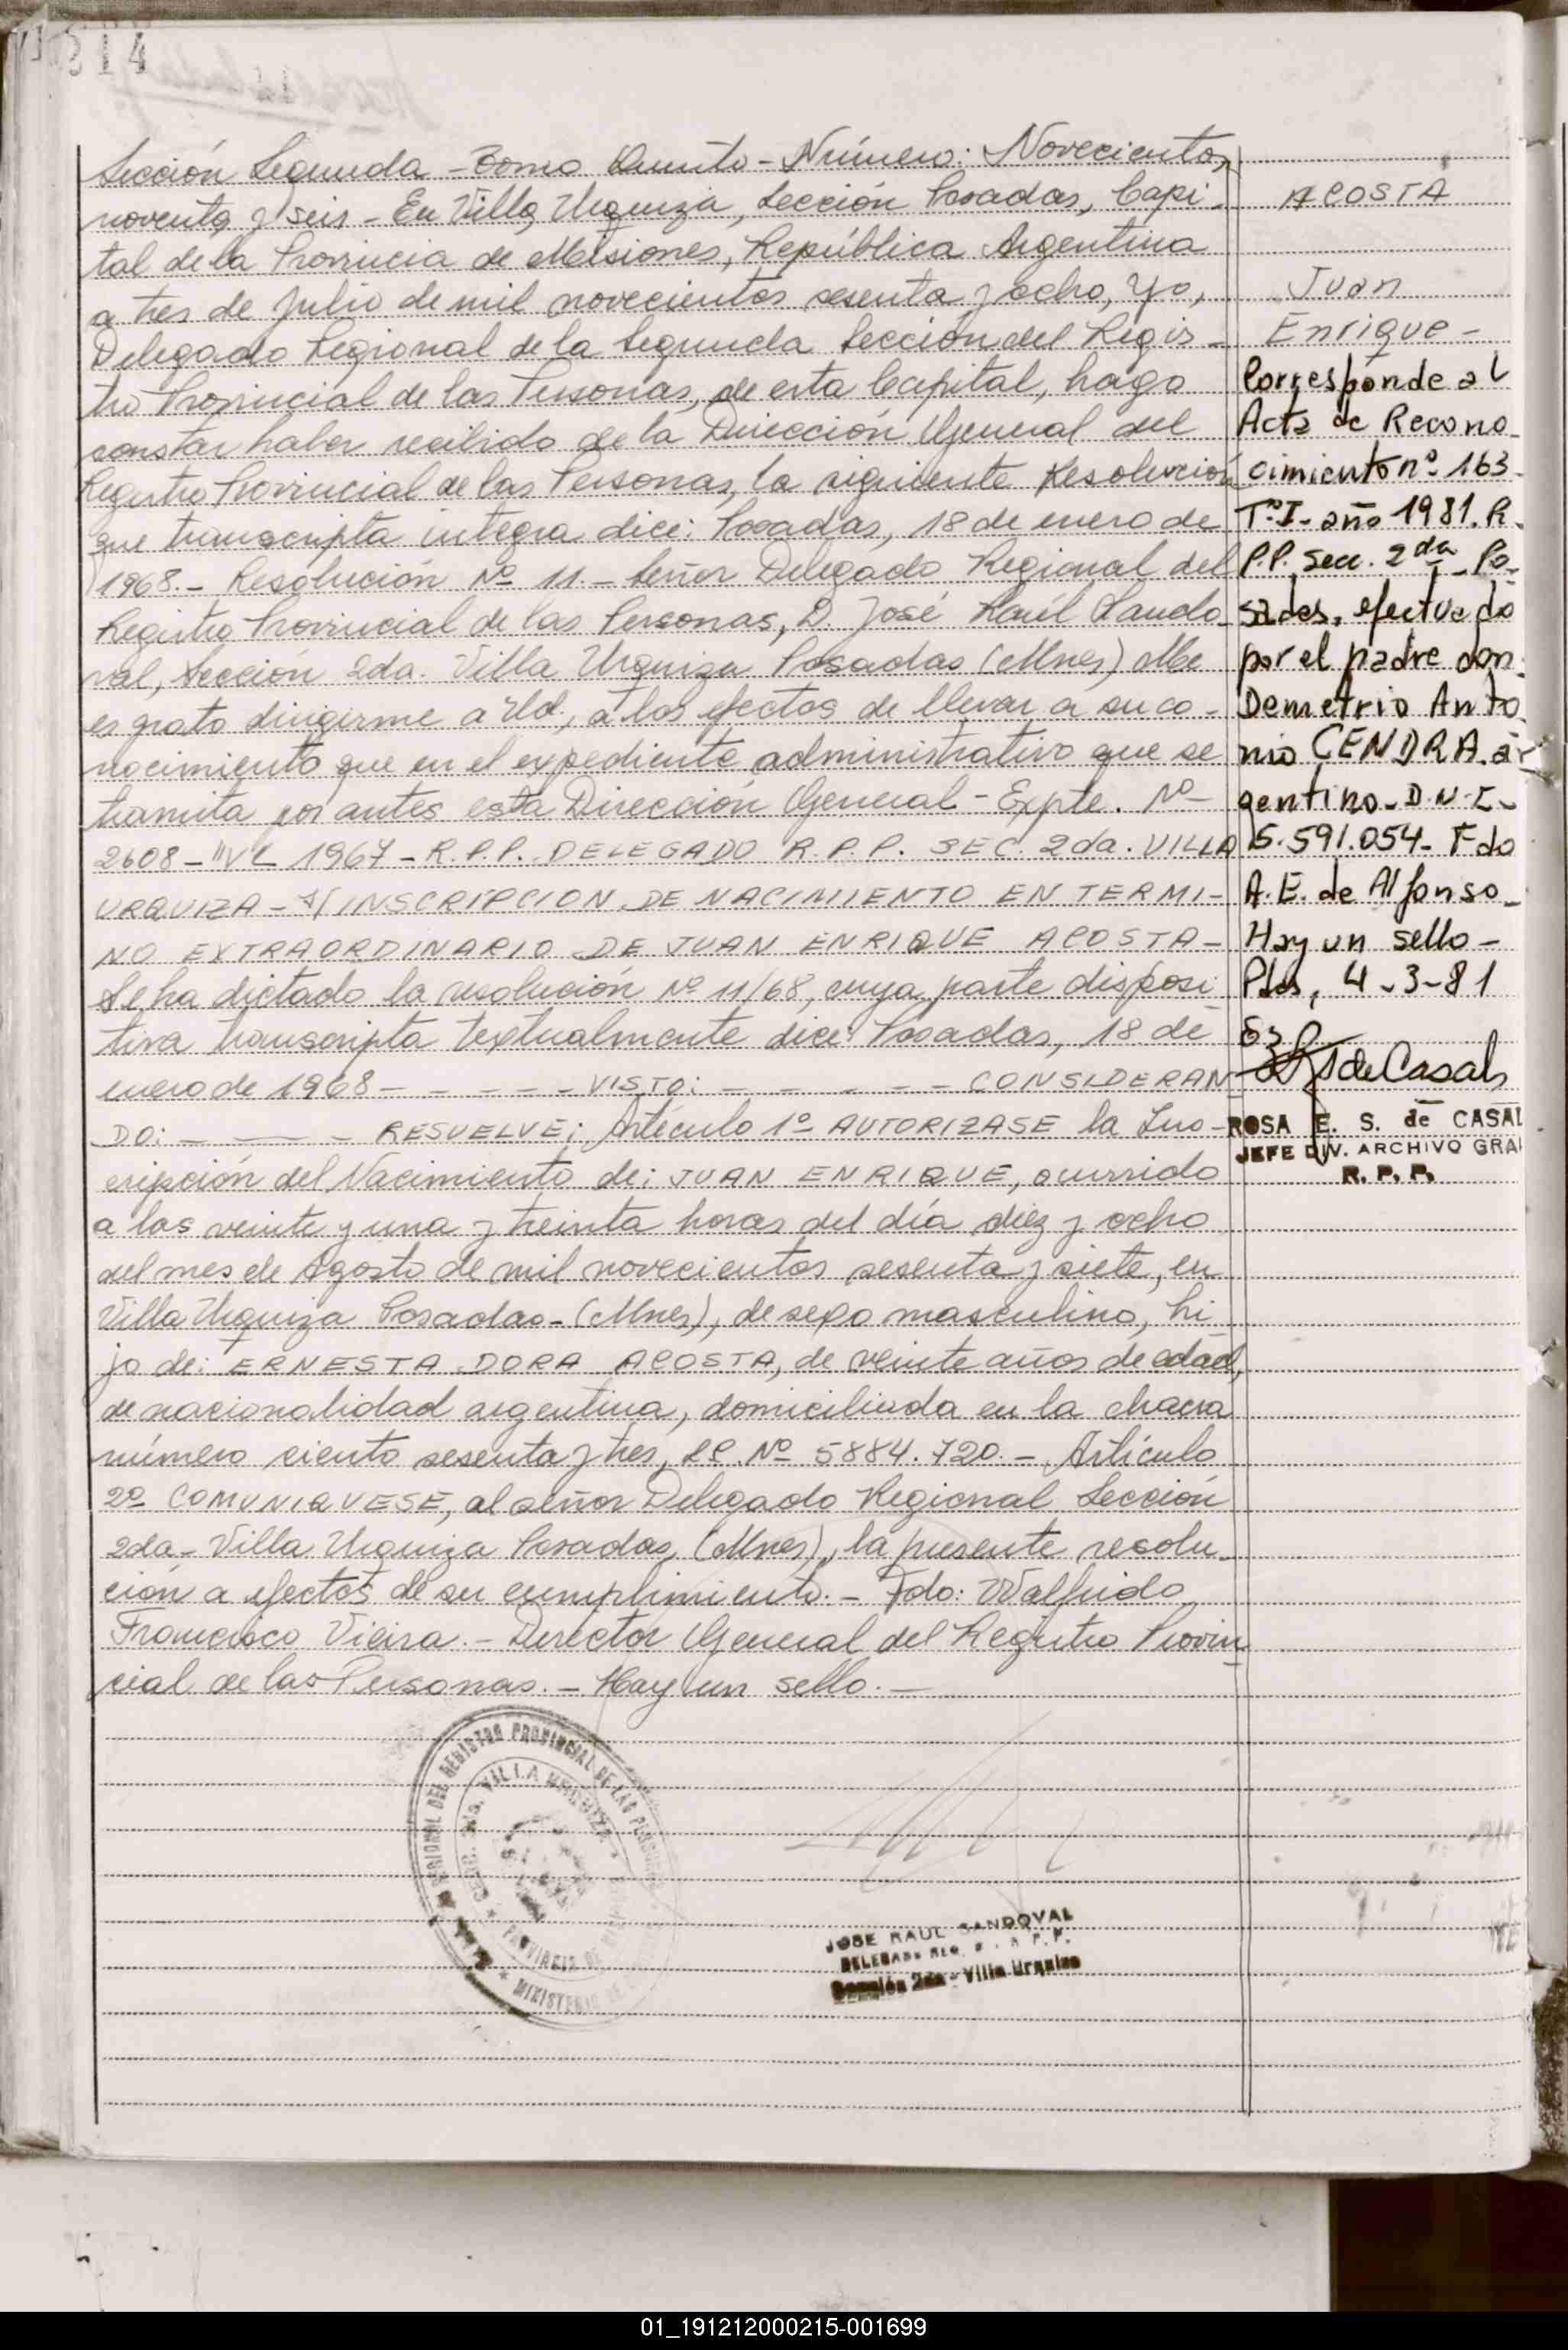 314
Sección Segunda - Tomo Quinto - Número: Novecientos
noventa y seis - En Villa Urquiza, Sección Posadas, Capi-
tal de la Provincia de Misiones, República Argentina
a tres de Julio de mil novecientos sesenta y ocho, Yo,
Delegado Regional de la Segunda Sección del Regis-
tro Provincial de las Personas, de esta Capital, hago
constar haber recibido de la Dirección General del
Registro Provincial de las Personas, la siguiente Resolución
que transcripta íntegra dice: Posadas, 18 de enero de
1968.- Resolución Nº 11.- Señor Delegado Regional del
Registro Provincial de las Personas, D. José Raúl Sando-
val, Sección 2da. Villa Urquiza Posadas (Mnes) Me
es grato dirigirme a Ud, a los efectos de llevar a su co-
nocimiento que en el expediente administrativo que se
tramita por antes esta Dirección General - Expte. Nº-
2608- 1967 - R.P.P. DELEGADO R.P.P. SEC. 2da. VILLA
URQUIZA - S/INSCRIPCION DE NACIMIENTO EN TERMI-
NO EXTRAORDINARIO DE JUAN ENRIQUE ACOSTA-
Se ha dictado la resolución Nº 11/68, cuya parte disposi-
tiva transcripta textualmente dice: Posadas, 18 de
enero de 1968 - - - - - VISTO: - - - - - CONSIDERAN-
DO: - - - RESUELVE: Artículo 1º AUTORIZASE la Ins-
cripción del Nacimiento de: JUAN ENRIQUE, ocurrido
a las veinte y una y treinta horas del día diez y ocho
del mes de Agosto de mil novecientos sesenta y siete, en
Villa Urquiza Posadas - (Mnes), de sexo masculino, hi
jo de: ERNESTA DORA ACOSTA, de veinte años de edad,
de nacionalidad argentina, domiciliada en la chacra
número ciento sesenta y tres, LC. Nº 5884.720.- Artículo
2º COMUNIQUESE, al señor Delegado Regional Sección
2da - Villa Urquiza Posadas, (Mnes), la presente resolu-
ción a efectos de su cumplimiento.- Fdo: Walfrido
Francisco Vieira.- Director General del Registro Provin
cial de las Personas.- Hay un sello.-
ACOSTA
Juan
Enrique -
Corresponde al
Acta de Recono-
cimiento nº 163
Tº I - año 1981. R.
P.P. Secc. 2da - Po-
sadas, efectuado
por el padre don
Demetrio Anto
nio CENDRA. ar
gentino - D.N.I.-
5.591.054- Fdo
A.E. de Alfonso-
Hay un sello-
Pdas, 4-3-81
de Casals
ROSA E. S. de CASAL
JEFE DIV. ARCHIVO GRAL
R. P. P.
REGIONAL DEL REGISTRO PROVINCIAL DE LAS PERSONAS
VILLA URQUIZA
PROVINCIA DE
MINISTERIO DE
JOSE RAUL SANDOVAL
DELEGADO REG. R.P.P.
Sección 2da - Villa Urquiza
01_191212000215-001699